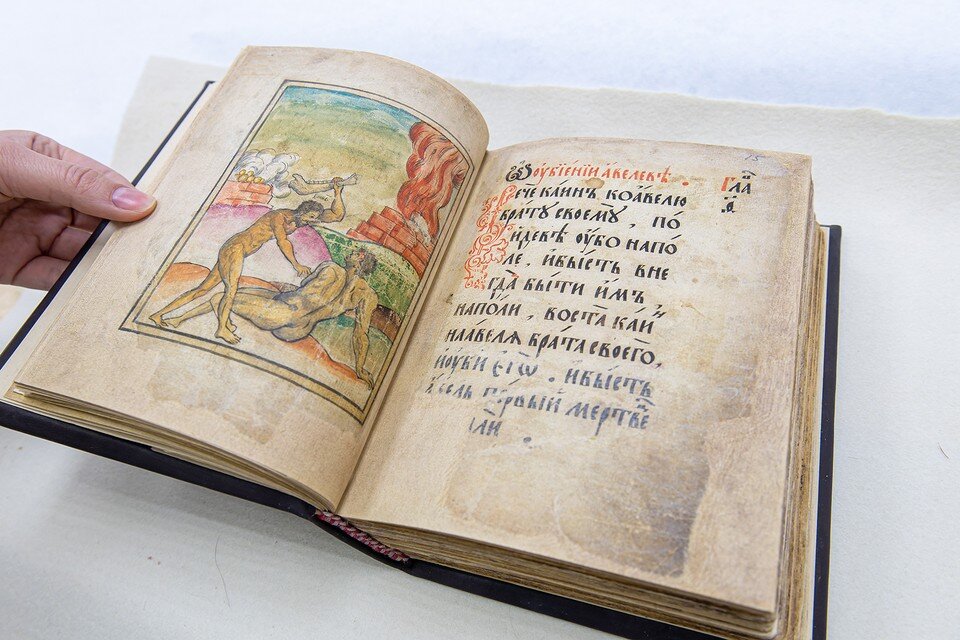 Ѿ оубїенїи а҆велевѣ .
Рече каинъ ко а҆велю
брату своемꙋ , по
идевѣ оу҆бо на по
ле , и҆ бысть вне
гда быти и҆мъ ,
наполи , воста каи҆
на а҆велѧ брата своего ,
и҆ оуби є҆го . и҆ бысть
пе́рвый мертве
гла